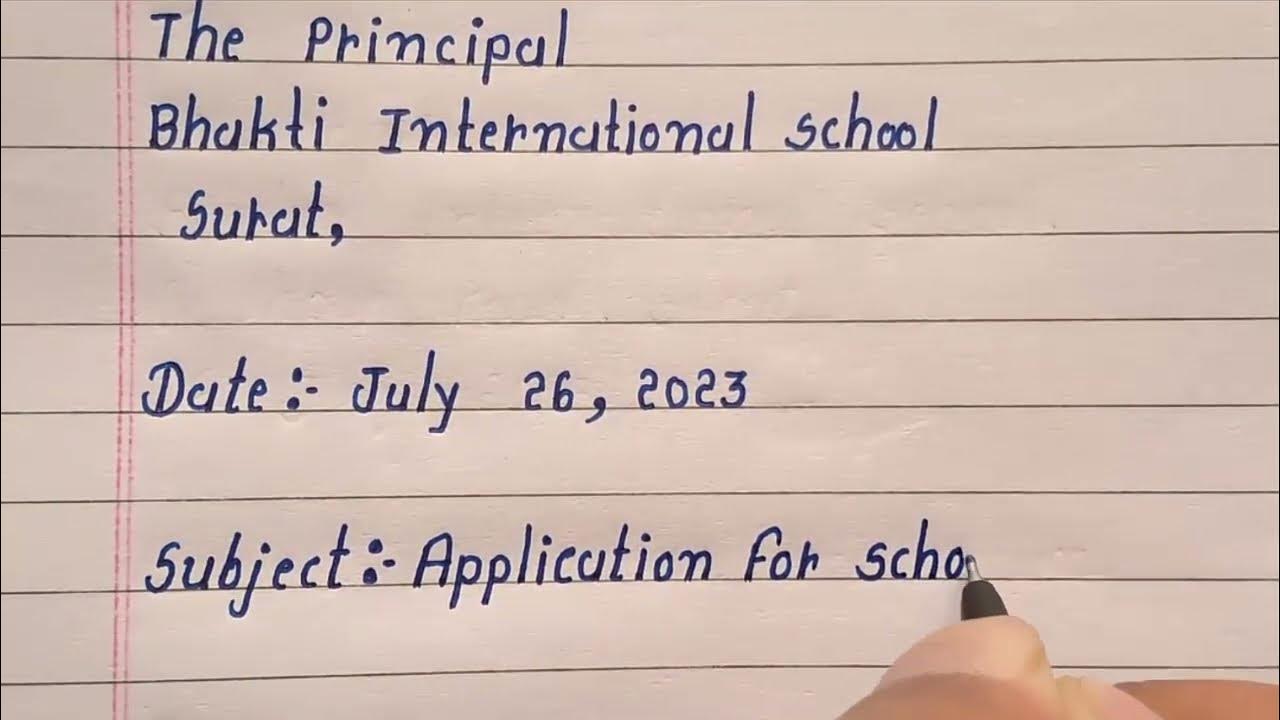 The Principal
Bhakti International school
Surat,
Date:- July 26, 2023
Subject:- Application for scho